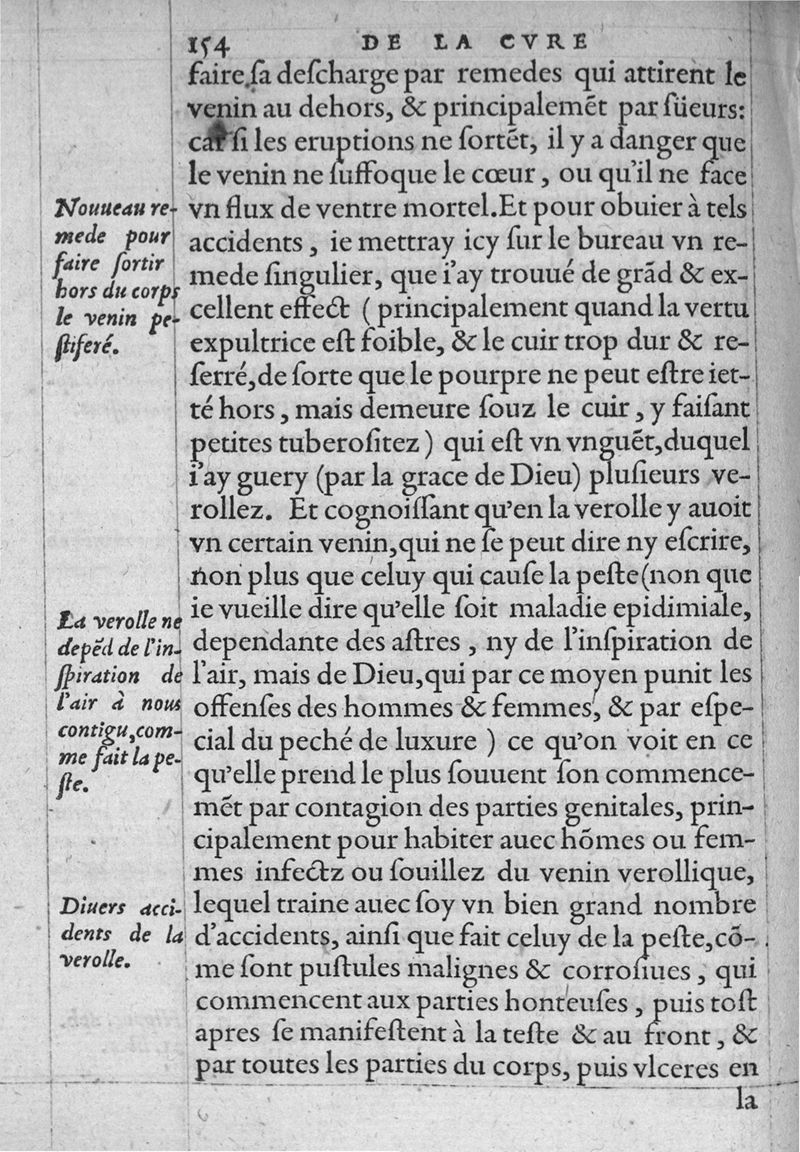 154 DE LA CVRE
faire sa descharge par remedes qui attirent le
venin au dehors, & principalemẽt par süeurs:
car si les eruptions ne sortẽt, il y a danger que
le venin ne suffoque le cœur, ou qu'il ne face
Nouueau re-
mede pour
faire sortir
hors du corps
le venin pe-
stiferé.
vn flux de ventre mortel. Et pour obuier à tels
accidents, ie mettray icy sur le bureau vn re-
mede singulier, que i'ay trouué de grãd & ex-
cellent effect (principalement quand la vertu
expultrice est foible, & le cuir trop dur & re-
serré, de sorte que le pourpre ne peut estre iet-
té hors, mais demeure souz le cuir, y faisant
petites tuberositez) qui est vn vnguẽt, duquel
i'ay guery (par la grace de Dieu) plusieurs ve-
rollez. Et cognoissant qu'en la verolle y auoit
vn certain venin, qui ne se peut dire ny escrire,
non plus que celuy qui cause la peste (non que
La verolle ne
depẽd de l'in-
spiration de
l'air à nous
contigu, com-
me fait la pe-
ste.
ie vueille dire qu'elle soit maladie epidimiale,
dependante des astres, ny de l'inspiration de
l'air, mais de Dieu, qui par ce moyen punit les
offenses des hommes & femmes, & par espe-
cial du peché de luxure) ce qu'on voit en ce
qu'elle prend le plus souuent son commence-
mẽt par contagion des parties genitales, prin-
cipalement pour habiter auec hõmes ou fem-
mes infectz ou souillez du venin verollique,
Diuers acci-
dents de la
verolle.
lequel traine auec soy vn bien grand nombre
d'accidents, ainsi que fait celuy de la peste, cõ-
me sont pustules malignes & corrosiues, qui
commencent aux parties honteuses, puis tost
apres se manifestent à la teste & au front, &
par toutes les parties du corps, puis vlceres en
la